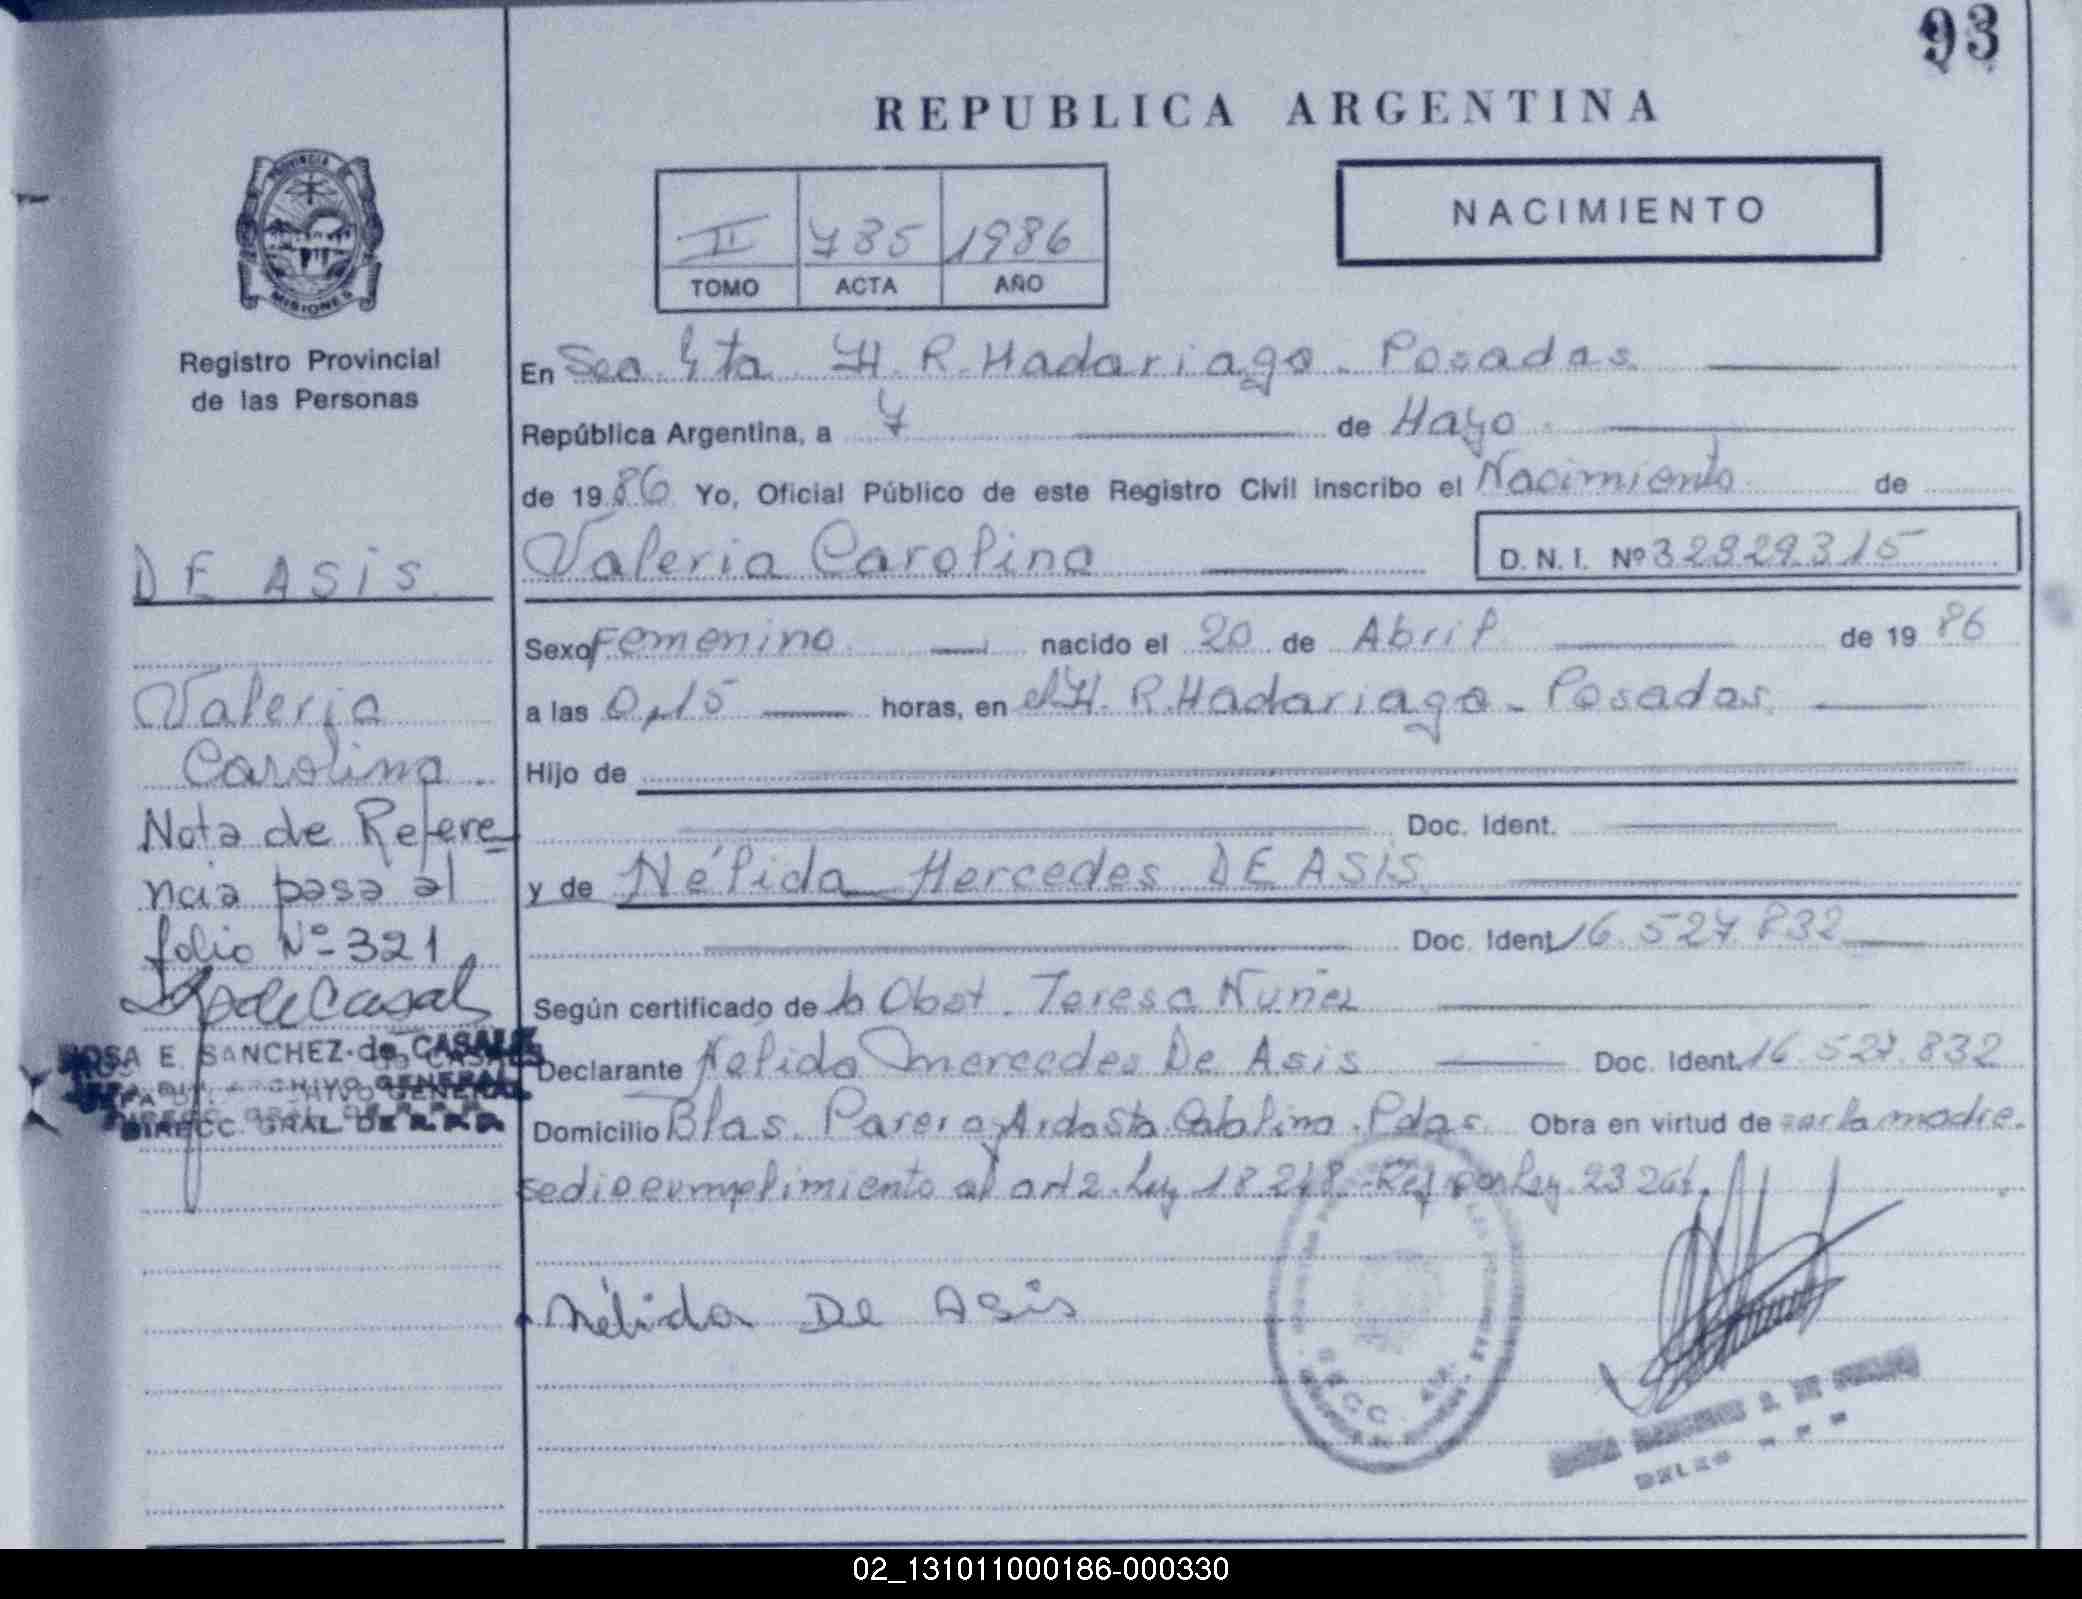 93
REPUBLICA ARGENTINA
NACIMIENTO
II 785 1986
TOMO ACTA AÑO
PROVINCIA
MISIONES
Registro Provincial
de las Personas
DE ASIS
Valeria
Carolina
Nota de Refere
ncia pasa al
folio Nº 321
RdeCasal
ROSA E. SANCHEZ de CASALE
ARCHIVO GENERAL
DIRECC. GRAL DE R.P.P.
En Sec. 4ta H. R. Madariaga - Posadas
República Argentina, a 7 de Mayo
de 1986 Yo, Oficial Público de este Registro Civil inscribo el Nacimiento de
Valeria Carolina D. N. I. Nº 32829315
Sexo Femenino nacido el 20 de Abril de 1986
a las 0,15 horas, en el H. R. Madariaga - Posadas
Hijo de
Doc. Ident.
y de Nélida Mercedes DE ASIS
Doc. Ident 16.527.832
Según certificado de la Obst. Teresa Nuñez
Declarante Nelida Mercedes De Asis Doc. Ident. 16.527.832
Domicilio Blas Parera y Avda Sta Catalina. Pdas. Obra en virtud de ser la madre.
se dio cumplimiento al art 2. Ley 18.248. Ref por Ley 23264.
Nélida De Asis
02_131011000186-000330